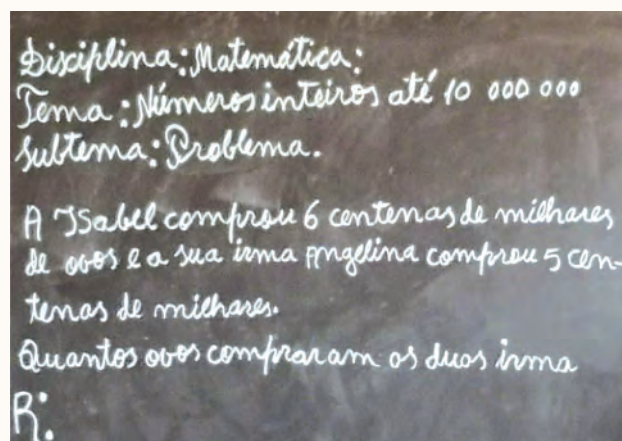 Disciplina: Matemática:
Tema: Números inteiros até 10 000 000
Subtema: Problema.
A Isabel comprou 6 centenas de milhares
de ovos e a sua irma Angelina comprou 5 cen-
tenas de milhares.
Quantos ovos compraram as duas irma
R: